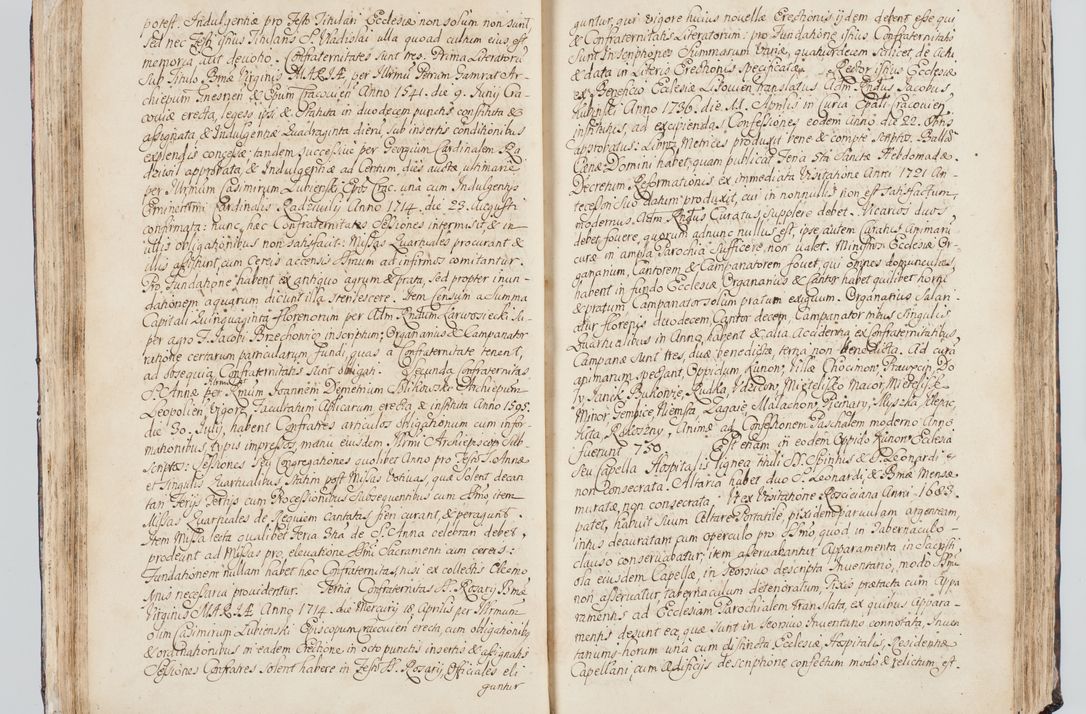 potest. Indulgentiæ pro Festo Titulari Ecclesiæ non solum non sunt
sed nec Festi istius Titularis S. Vladislai ulla quoad cultum eius est
memoria aut devotio. Confraternitates sunt tres. Prima Literatorũ
sub Titulo Bmæ Virginis MARIÆ, per Illrmũ Petrum Gamrat Ar-
chiepum Gnesnen & Epum Cracovien Anno 1541. die 9. Junij Cra-
coviæ erecta, leges ipsi & Statuta in duodecem punctis constituta &
assignata & Indulgentiæ Quadraginta dierũ sub insertis conditionibus
explendis concessæ: tandem successive per Georgium Cardinalem Ra
dzivil approbata, & Indulgentiæ ad Centum dies auctæ ultimarie
per Illrmum Casimirum Łubieński Epũ Crac. una cum Indulgentijs
Eminentmi Cardinalis Radzivilij Anno 1714. die 23. Augusti
confirmata: nunc hæc Confraternitates Sessiones intermisit, & in
illis obligationibus non satisfacit: Missas Quartuales procurant &
illis assistunt, cum Cereis accensis Ssmum ad infirmos comitantur.
Pro Fundatione habent ex antiquo agrum & prata, sed propter inun-
dationem aquarum dicunt illa sterilescere. Item Censum a Summa
Capitali Quinquaginta florenorum per Adm. Rndum Larwosiecki su-
per agro F. Jacobi Brzechowic inscriptum; Organarius & Campanator
ratione certarum particularum fundi, quas a Confraternitate tenent,
ad obsequia Confraternitatis sunt obligati. Secunda Confraternitas
S. Annæ per Illrmum & Rmum Joannem Demetrium Solikowski Archiepum
Leopolien. vigore Facultatum Aplicarum erecta & instituta Anno 1595.
die 30. Julij, habent Confratres articulos obligationum cum infor-
mationibus, typis impressos, manu eiusdem Illrmi Archiepiscopi sub-
scriptos: Sessiones seu Congregationes quolibet Anno pro Festo S. Annæ
et singulis Quartualibus, statim post Missas votivas, quæ solent decan
tari Ferijs Tertijs cum Processionibus subsequentibus cum Ssmo, item
Missas Quartuales de Requiem cantatas fieri curant, & peragunt.
Item Missa lecta qualibet Feria 3tia de S. Anna celebrari debet,
prodeunt ad Missas pro elevatione Ssmi Sacramenti cum cereis:
Fundationem nullam habet hæc Confraternitas, nisi ex collectis Eleemo
sinis necessaria providentur. Tertia Confraternitas SS. Rosarij Bmæ
Virginis MARIÆ Anno 1714. die Mercurij 18 Aprilis per Illrmum
olim Casimirum Łubieński Episcopum Cracovien erecta, cum obligationibg
& ordinationibus in eadem Erectione in octo punctis insertis & assignatis
Sessiones Confratres solent habere in Festo SS. Rosarij, Officiales eli
guntur
guntur, qui vigore huius novellæ Erectionis ijdem debent esse qui
& Confraternitatis Literatorum: pro Fundatione istius Confraternitatis
sunt Inscriptiones Summarum variæ, quatuordecem scilicet de actu
& data in Literis Erectionis specificatæ. Rector istius Ecclesiæ
ex Beneficio Ecclesiæ Lisovien translatus Adm. Rndus Jacobus,
Kubiński Anno 1736. die 11. Aprilis in Curia Epali Cracovien.
institutus, ad excipiendas Confessiones eodem anno die 22. Aprilis
approbatus: Libros Metrices produxit bene & compte scriptos. Bullã
Cœnæ Domini habet, quam publicat Feria 5ta Sanctæ Hebdomadæ.
Decretum Reformationis ex immediata Visitatione Anni 1721 An-
tecessori suo datum produxit, cui in nonnullis non est satisfactum,
modernus Adm. Rndus Curatus, supplere debet. Vicarios duos,
debet fovere, quorum adnunc nullus est, ipse autem Curatus animarũ
curæ in ampla Parochia sufficere non valet. Ministros Ecclesiæ Or-
ganarium, Cantorem & Campanatorem fovet, qui omnes domunculas,
habent in fundo Ecclesiæ Organarius & Cantor habet quilibet hortũ
& pratum, Campanator solum pratum exiguum. Organarius Salari-
atur florenis duodecem, Cantor decem, Campanator tribus singulis
Quartualibus in Anno, habent & alia accidentia ex Confraternitatibus,
Campanæ sunt tres, duæ benedictæ, tertia non benedicta. Ad curã
animarum spectant, Oppidum Kunow, Villæ Chocimow, Prawęcin, Do
ły, Janik, Bukowie, Rudka, Udzicow, Miłkowska Maior, Miłkowska
Minor, Gempice, Nemsta, Zagaie, Malachow, Piotnary, Myszka, Klepac,
Kuta, Kolesżeny, Animæ ad Confessionem Paschalem moderno Anno
fuerunt 750. Est etiam in eodem Oppido Kunow Ecclesia
seu Capella Hospitalis lignea tituli SS. Spiritus & S. Leonardi &
non consecrata. Altaria habet duo S. Leonardi, & Bmæ Mensæ
muratæ, non consecratæ. Ut ex Visitatione Rosiciana Anni 1683.
patet, habuit suum Altare Portatile, pixidem parvulam argenteam,
intus deauratam cum operculo pro Ssmo quod in Tabernaculo
clauso conservabatur, item asservabantur Apparamenta in Sacristi
ola eiusdem Capellæ, in seorsivo descripta Inventario, modo Ssmũ
non asservatur tabernaculum deterioratum, Pixis prætacta cum Appa
ramentis ad Ecclesiam Parochialem translata ex quibus Appara-
mentis desunt ea, quæ sunt in seorsivo Inventario connotata, Inven
tarium horum una cum distincta Ecclesiæ, Hospitalis, Residentiæ
Capellani, cum ædificijs descriptione confectum modo & relictum est.